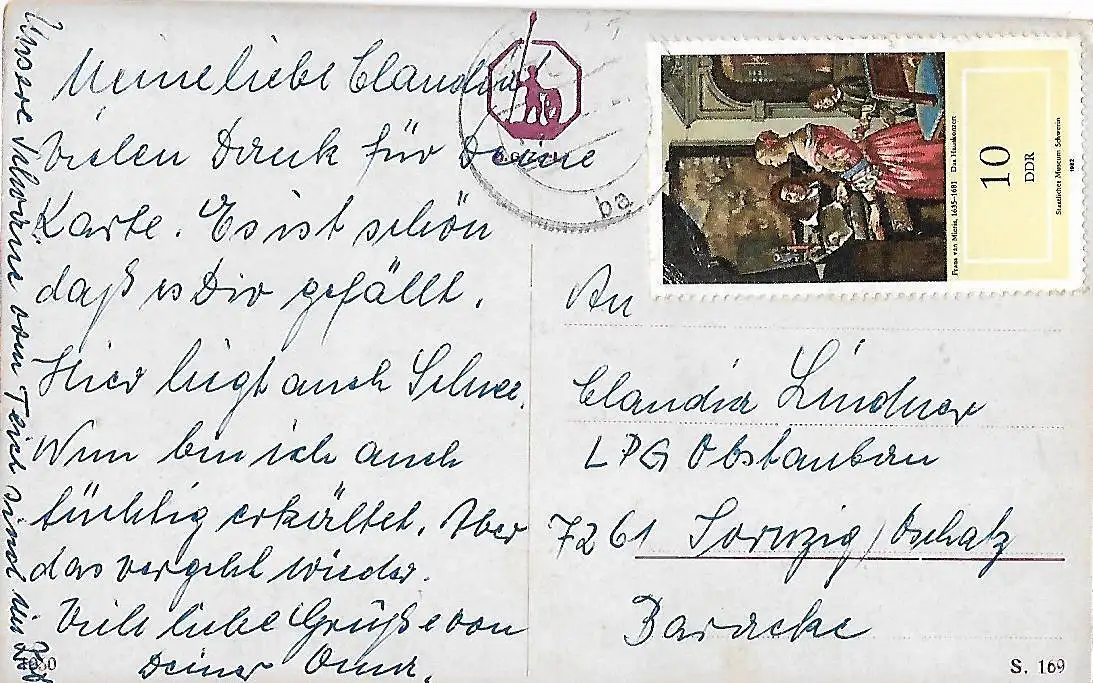 Meine liebe Claudia
Vielen Dank für Deine
Karte. Es ist schön
daß es Dir gefällt.
Hier liegt auch Schnee.
Nun bin ich auch
tüchtig erkältet. Aber
das vergeht wieder.
Viele liebe Grüße von
Deiner Oma.
Unsere Schwäne vom Teich sind
ba
Frans van Mieris, 1635–1681 Das Hauskonzert
10
DDR
Staatliches Museum Schwerin
1982
An
Claudia Lindner
LPG Obstanbau
7261 Sornzig/Oschatz
Baracke
S. 169